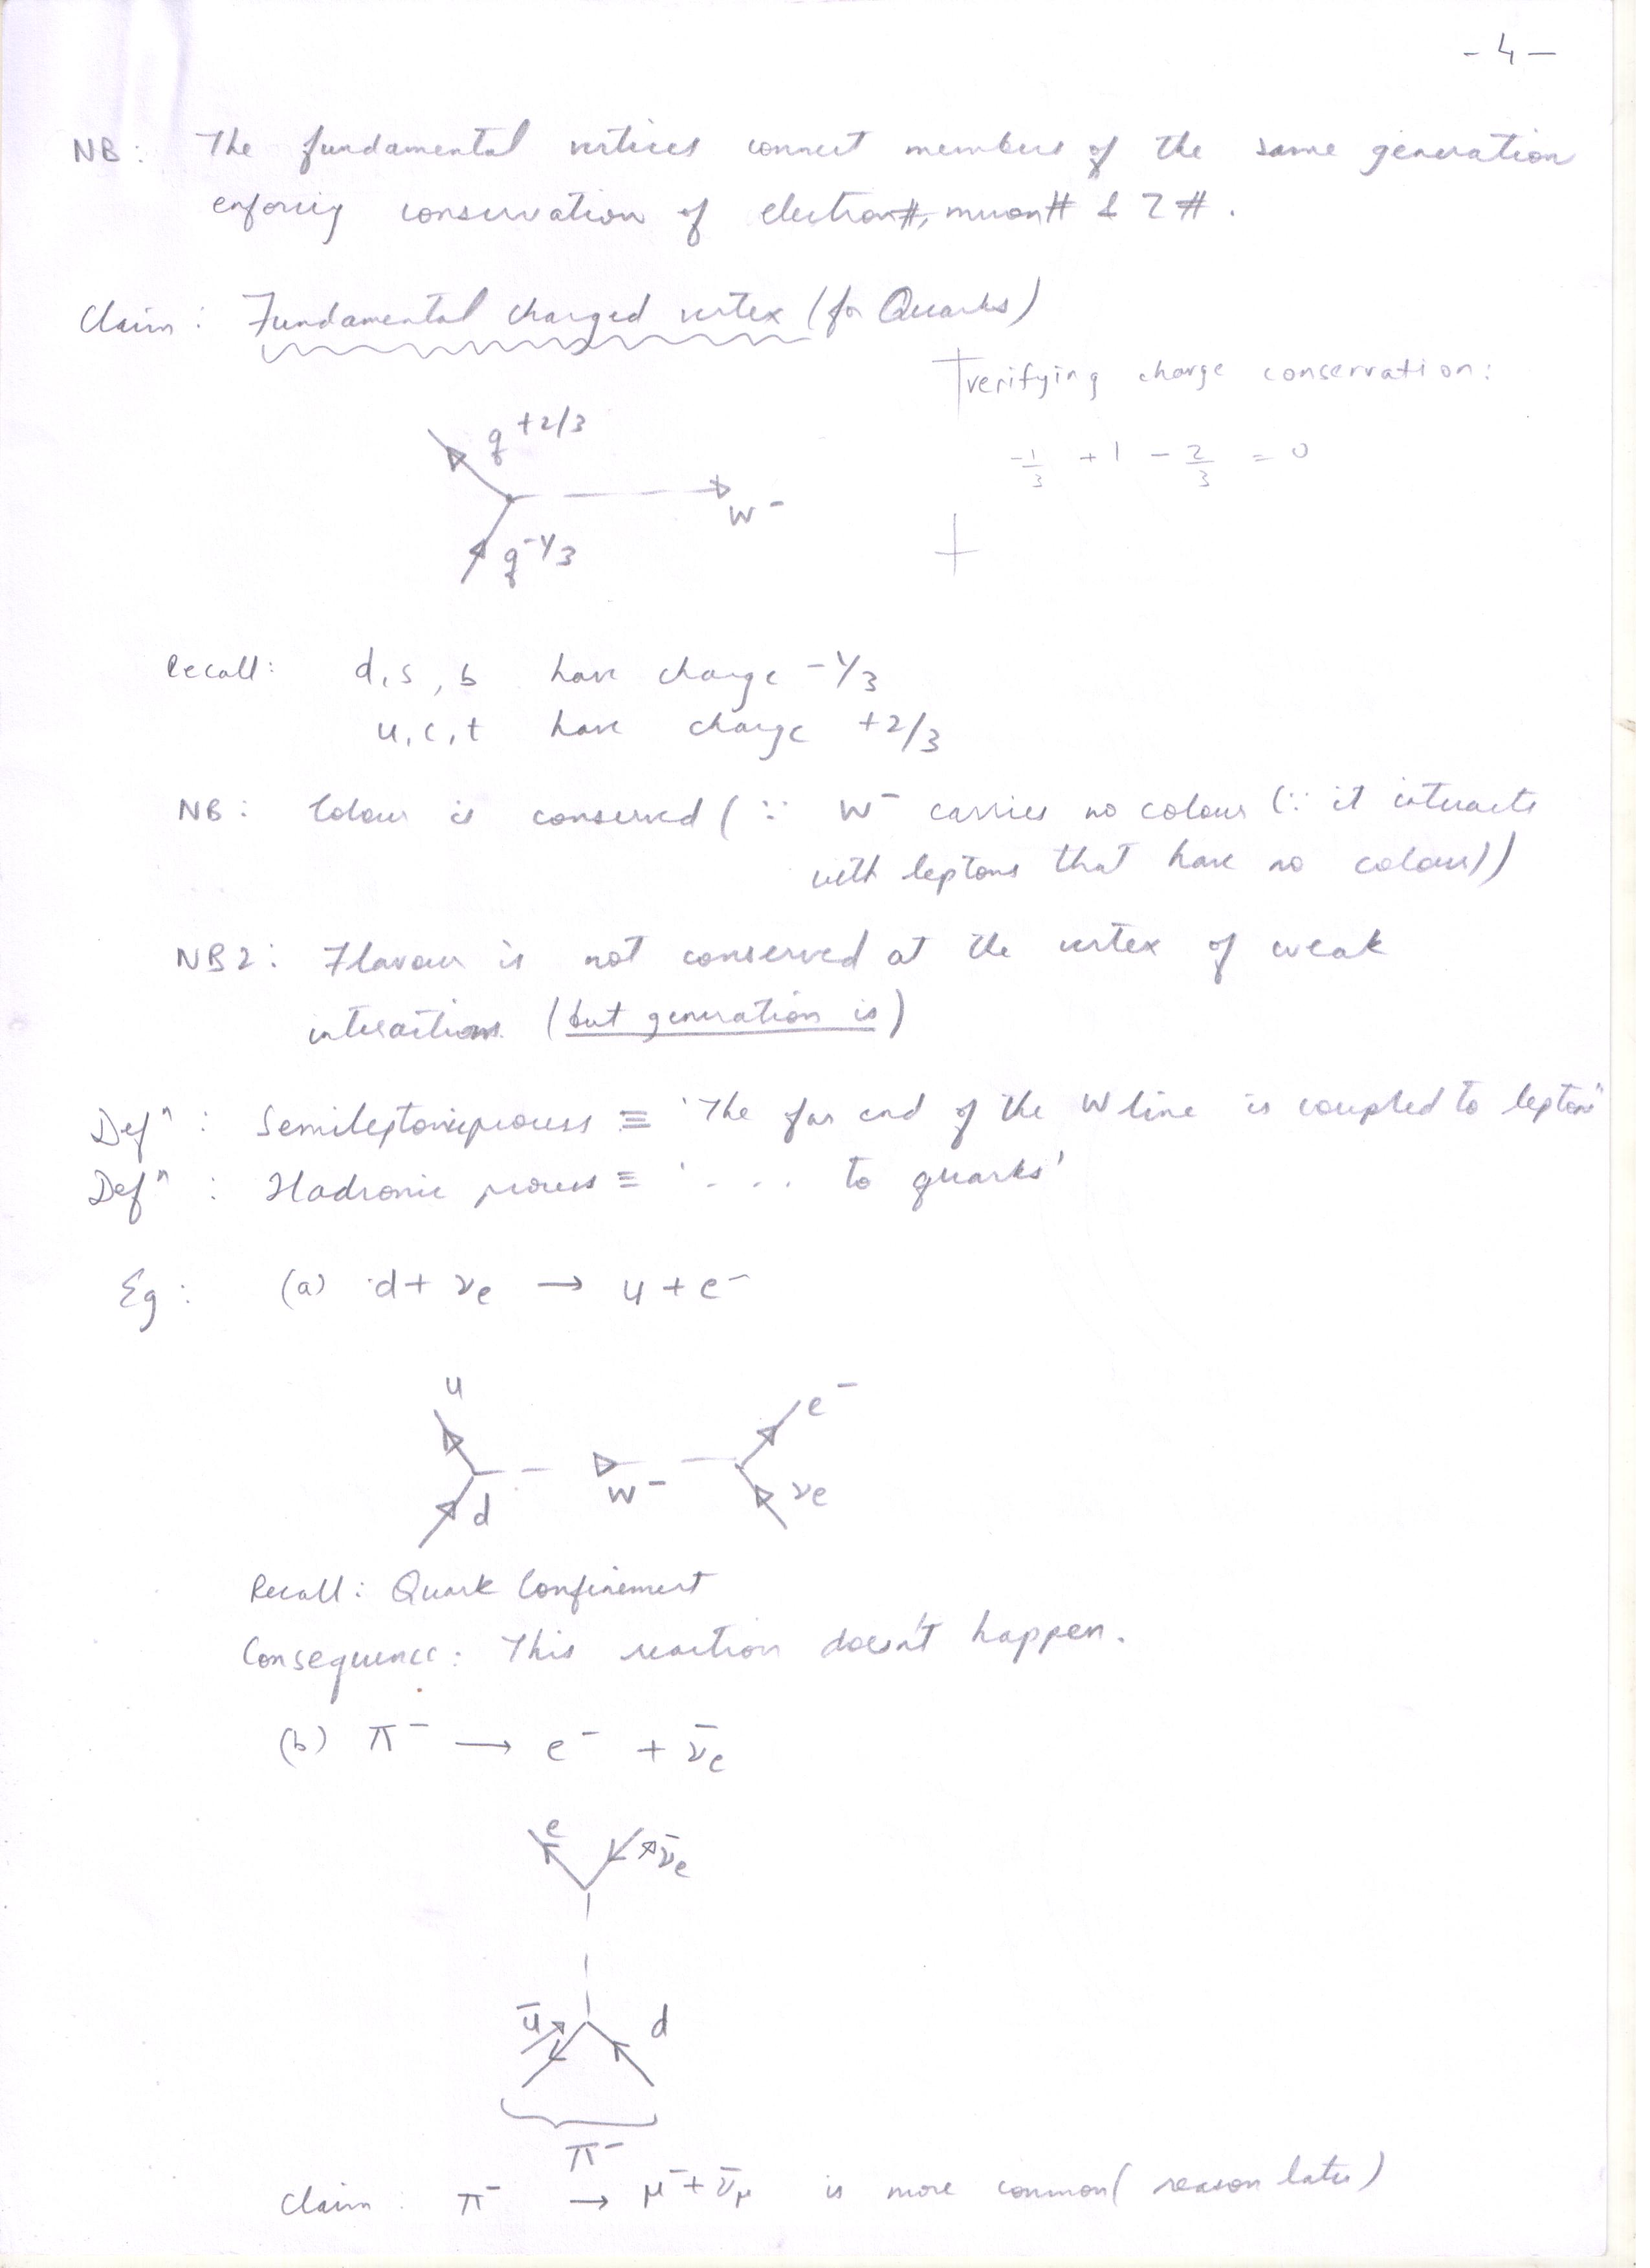 - 4 -
NB: The fundamental vertices connect members of the same generation
enforcing conservation of electron#, muon# & τ#.
Claim: Fundamental charged vertex (for Quarks)
verifying charge conservation:
q +2/3
-1/3 + 1 - 2/3 = 0
W-
q -1/3
Recall: d, s, b have charge -1/3
u, c, t have charge +2/3
NB: Colour is conserved (∵ W- carries no colour (∵ it interacts
with leptons that have no colour))
NB2: Flavour is not conserved at the vertex of weak
interactions (but generation is)
Defn: Semileptonic process ≡ 'The far end of the W line is coupled to leptons'
Defn: Hadronic process ≡ '. . . . to quarks'
Eg: (a) d + νe → u + e-
u e-
W-
d νe
Recall: Quark Confinement
Consequence: This reaction doesn't happen.
(b) π- → e- + ν̄e
e ν̄e
ū d
π-
Claim: π- → μ- + ν̄μ is more common (reason later)